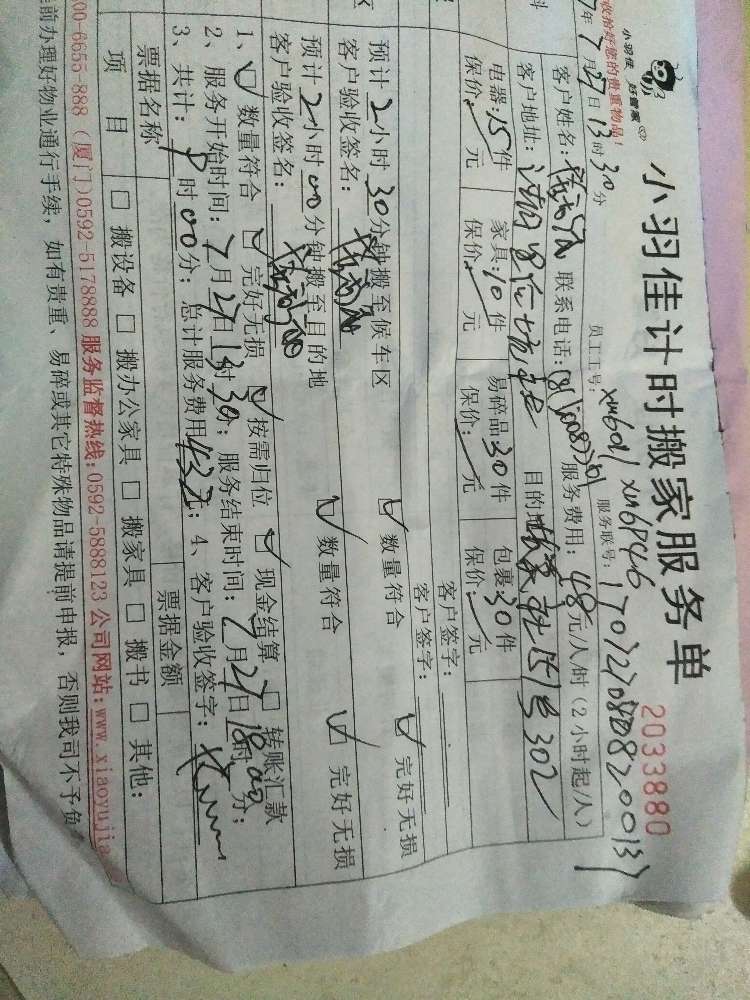 小羽佳 好管家
收拾好您的贵重物品！
小羽佳计时搬家服务单
2033880
年7月27日13时30分
员工工号：xm6011 xm6846
服务联号：
客户姓名： 联系电话： 服务费用：48元/人/时（2小时起/人）
客户地址： 目的地 302
电器：15件 家具：10件 易碎品30件 包裹：30件
保价： 元 保价： 元 保价： 元 保价： 元
客户签字：
客户签字：
预计2小时30分钟搬至候车区 数量符合 完好无损
客户验收签名：
预计2小时00分钟搬至目的地 数量符合 完好无损
客户验收签名：
1、 数量符合 完好无损 按需归位 现金结算 转账汇款
2、服务开始时间：7月27日13时30分；服务结束时间：7月27日18时00分；
3、共计：9时00分；总计服务费用432元；4、客户验收签字：
票据名称 票据金额
项目 搬设备 搬办公家具 搬家具 搬书 其他：
00-6655-888（厦门）0592-5178888 服务监督热线：0592-5888123 公司网站：www.xiaoyujia
前办理好物业通行手续，如有贵重、易碎或其它特殊物品请提前申报，否则我司不予负